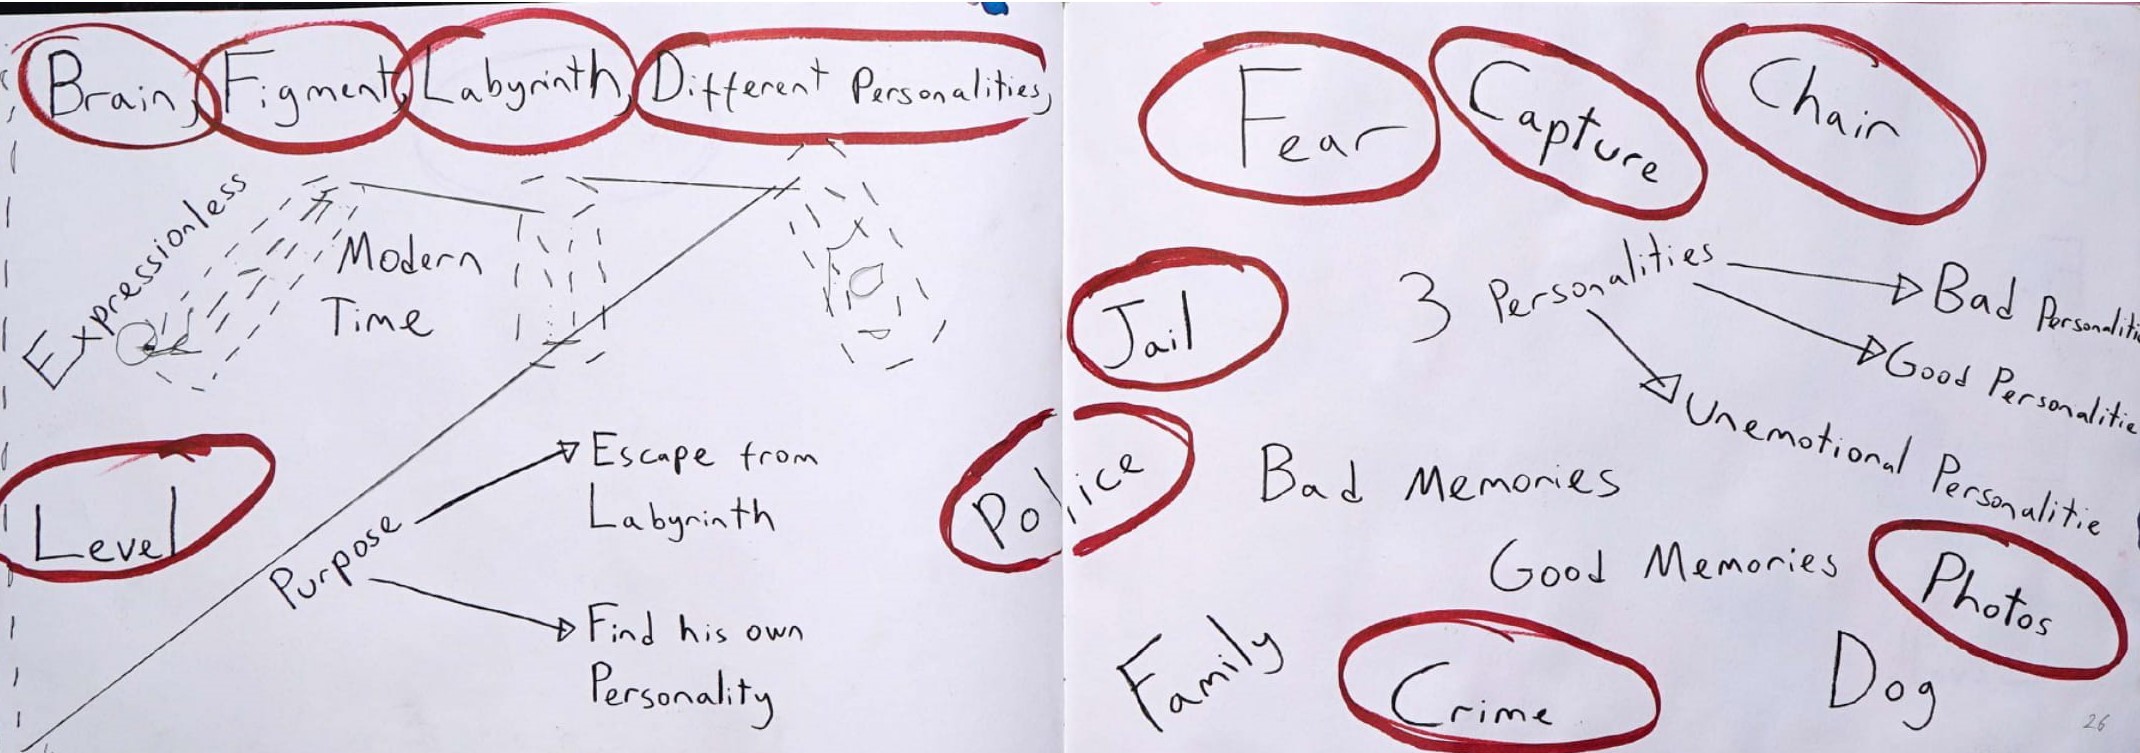 Brain, Figment, Labyrinth, Different Personalities,
Expressionless
Modern
Time
Level
Purpose
Escape from
Labyrinth
Find his own
Personality
Fear
Capture
Chair
Jail
3 Personalities
Bad Personalitie
Good Personalitie
Unemotional Personalitie
Police
Bad Memories
Good Memories
Photos
Family
Crime
Dog
26